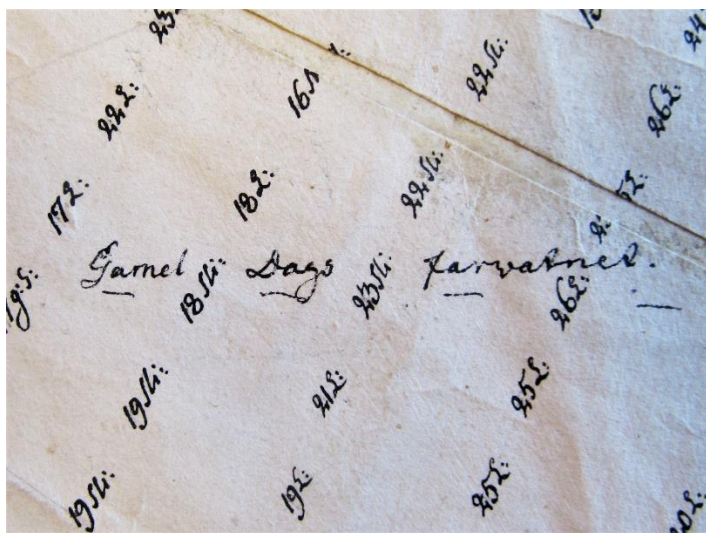 22L:
22Sl:
26L:
17L:
18L:
22Sl:
Gamel Dags farwatnet.
18Sl:
23Sl:
26L:
19Sl:
21L:
25L:
19Sl:
19L:
25L: